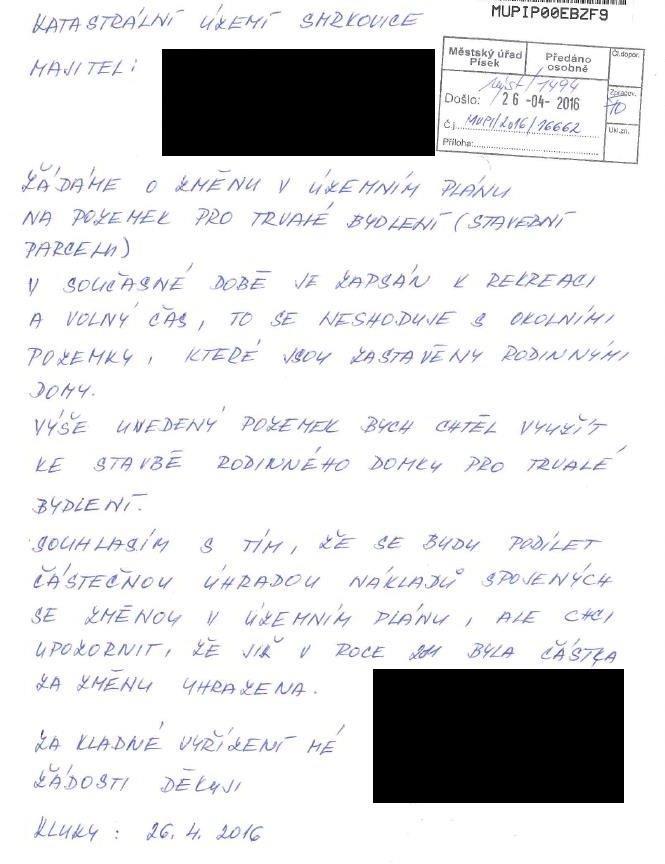 KATASTRÁLNÍ ÚZEMÍ SMRKOVICE
MUPIP00EBZF9
MAJITEL:
Městský úřad Písek
Předáno osobně
Čl.dopor.
Zpracov.
10
Došlo: 26 -04- 2016
Č.j. MUPI/2016/16662
Ukl.zn.
Příloha:
ŽÁDÁME O ZMĚNU V ÚZEMNÍM PLÁNU
NA POZEMEK PRO TRVALÉ BYDLENÍ (STAVEBNÍ
PARCELU)
V SOUČASNÉ DOBĚ JE ZAPSÁN K REKREACI
A VOLNÝ ČAS, TO SE NESHODUJE S OKOLNÍMI
POZEMKY, KTERÉ JSOU ZASTAVĚNY RODINNÝMI
DOMY.
VÝŠE UVEDENÝ POZEMEK BYCH CHTĚL VYUŽÍT
KE STAVBĚ RODINNÉHO DOMKU PRO TRVALÉ
BYDLENÍ.
SOUHLASÍM S TÍM, ŽE SE BUDU PODÍLET
ČÁSTEČNOU ÚHRADOU NÁKLADŮ SPOJENÝCH
SE ZMĚNOU V ÚZEMNÍM PLÁNU, ALE CHCI
UPOZORNIT, ŽE JIŽ V ROCE 2011 BYLA ČÁSTKA
ZA ZMĚNU UHRAZENA.
ZA KLADNÉ VYŘÍZENÍ MÉ
ŽÁDOSTI DĚKUJI
KLUKY: 26. 4. 2016